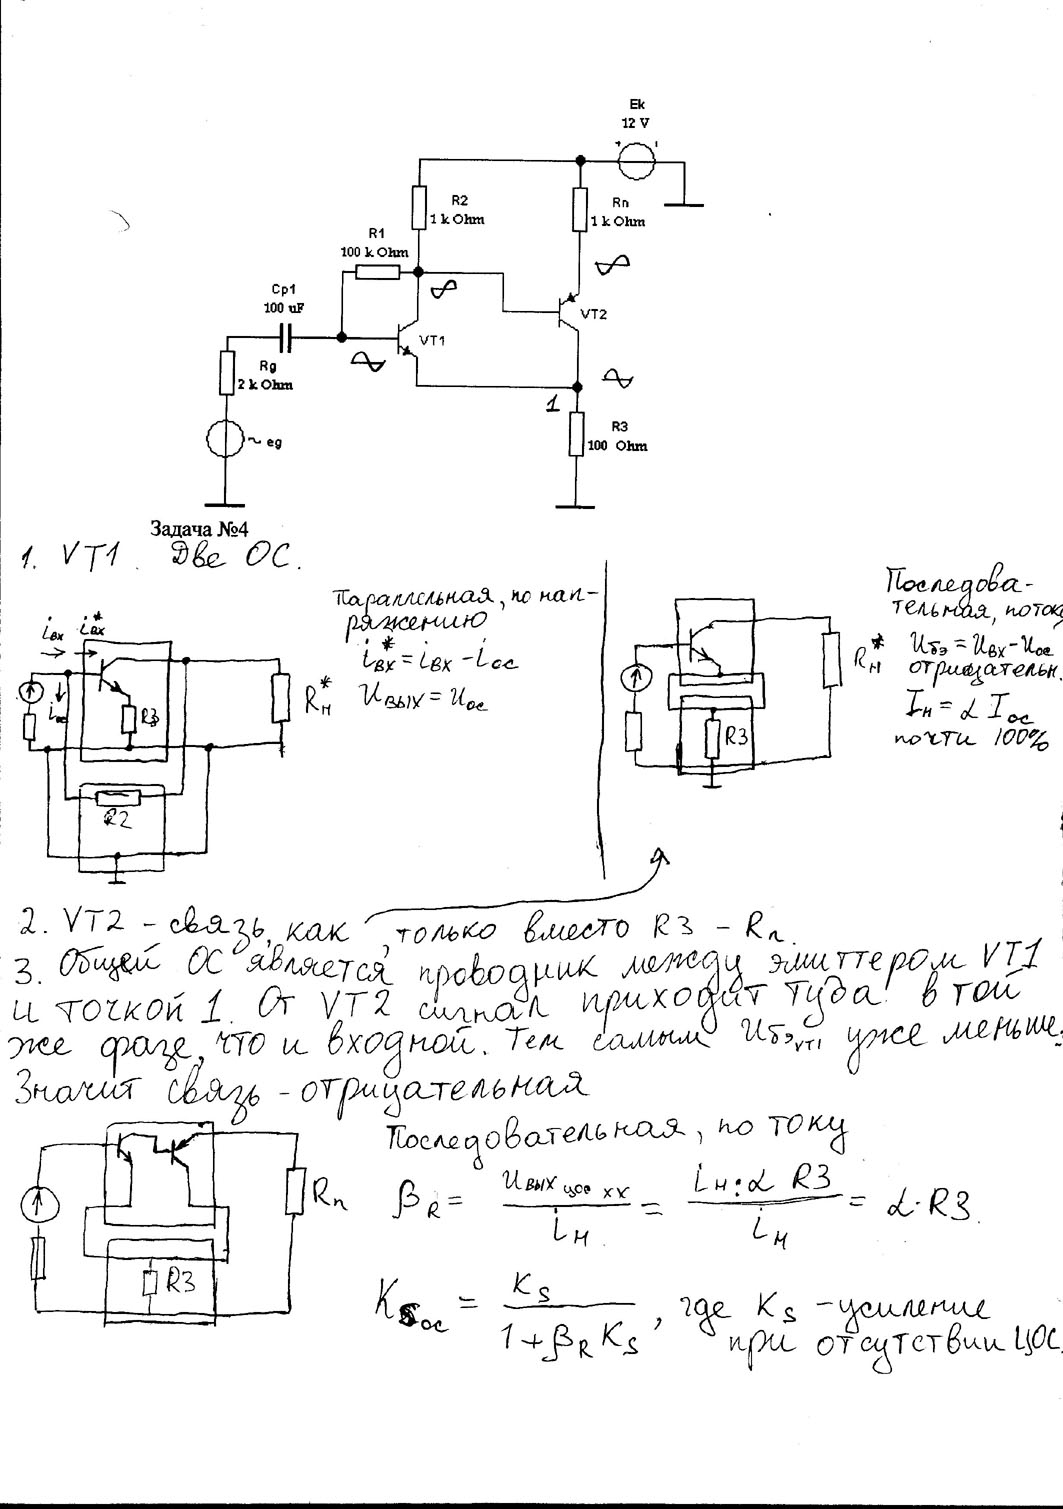 Ek
12 V
R2
1 k Ohm
Rn
1 k Ohm
R1
100 k Ohm
Cp1
100 uF
VT2
VT1
Rg
2 k Ohm
1
R3
100 Ohm
~ eg
Задача №4
1. VT1. Две ОС.
Параллельная, по нап-
ряжению
iвх* = iвх - iос
Uвых = Uос
iвх iвх*
iос
R3
Rн*
R2
Последова-
тельная, по току
Uбэ = Uвх - Uос
отрицательн.
Iн = α Iос
почти 100%
Rн*
R3
2. VT2 - связь, как , только вместо R3 - Rn.
3. Общей ОС является проводник между эмиттером VT1
и точкой 1. От VT2 сигнал приходит туда в той
же фазе, что и входной. Тем самым Uбэ VT1 уже меньше.
Значит связь - отрицательная
Последовательная, по току
βR = Uвых цос хх / iн = iн · α R3 / iн = α · R3
Rn
R3
KS ос = KS / 1 + βR KS , где KS - усиление
при отсутствии ЦОС.